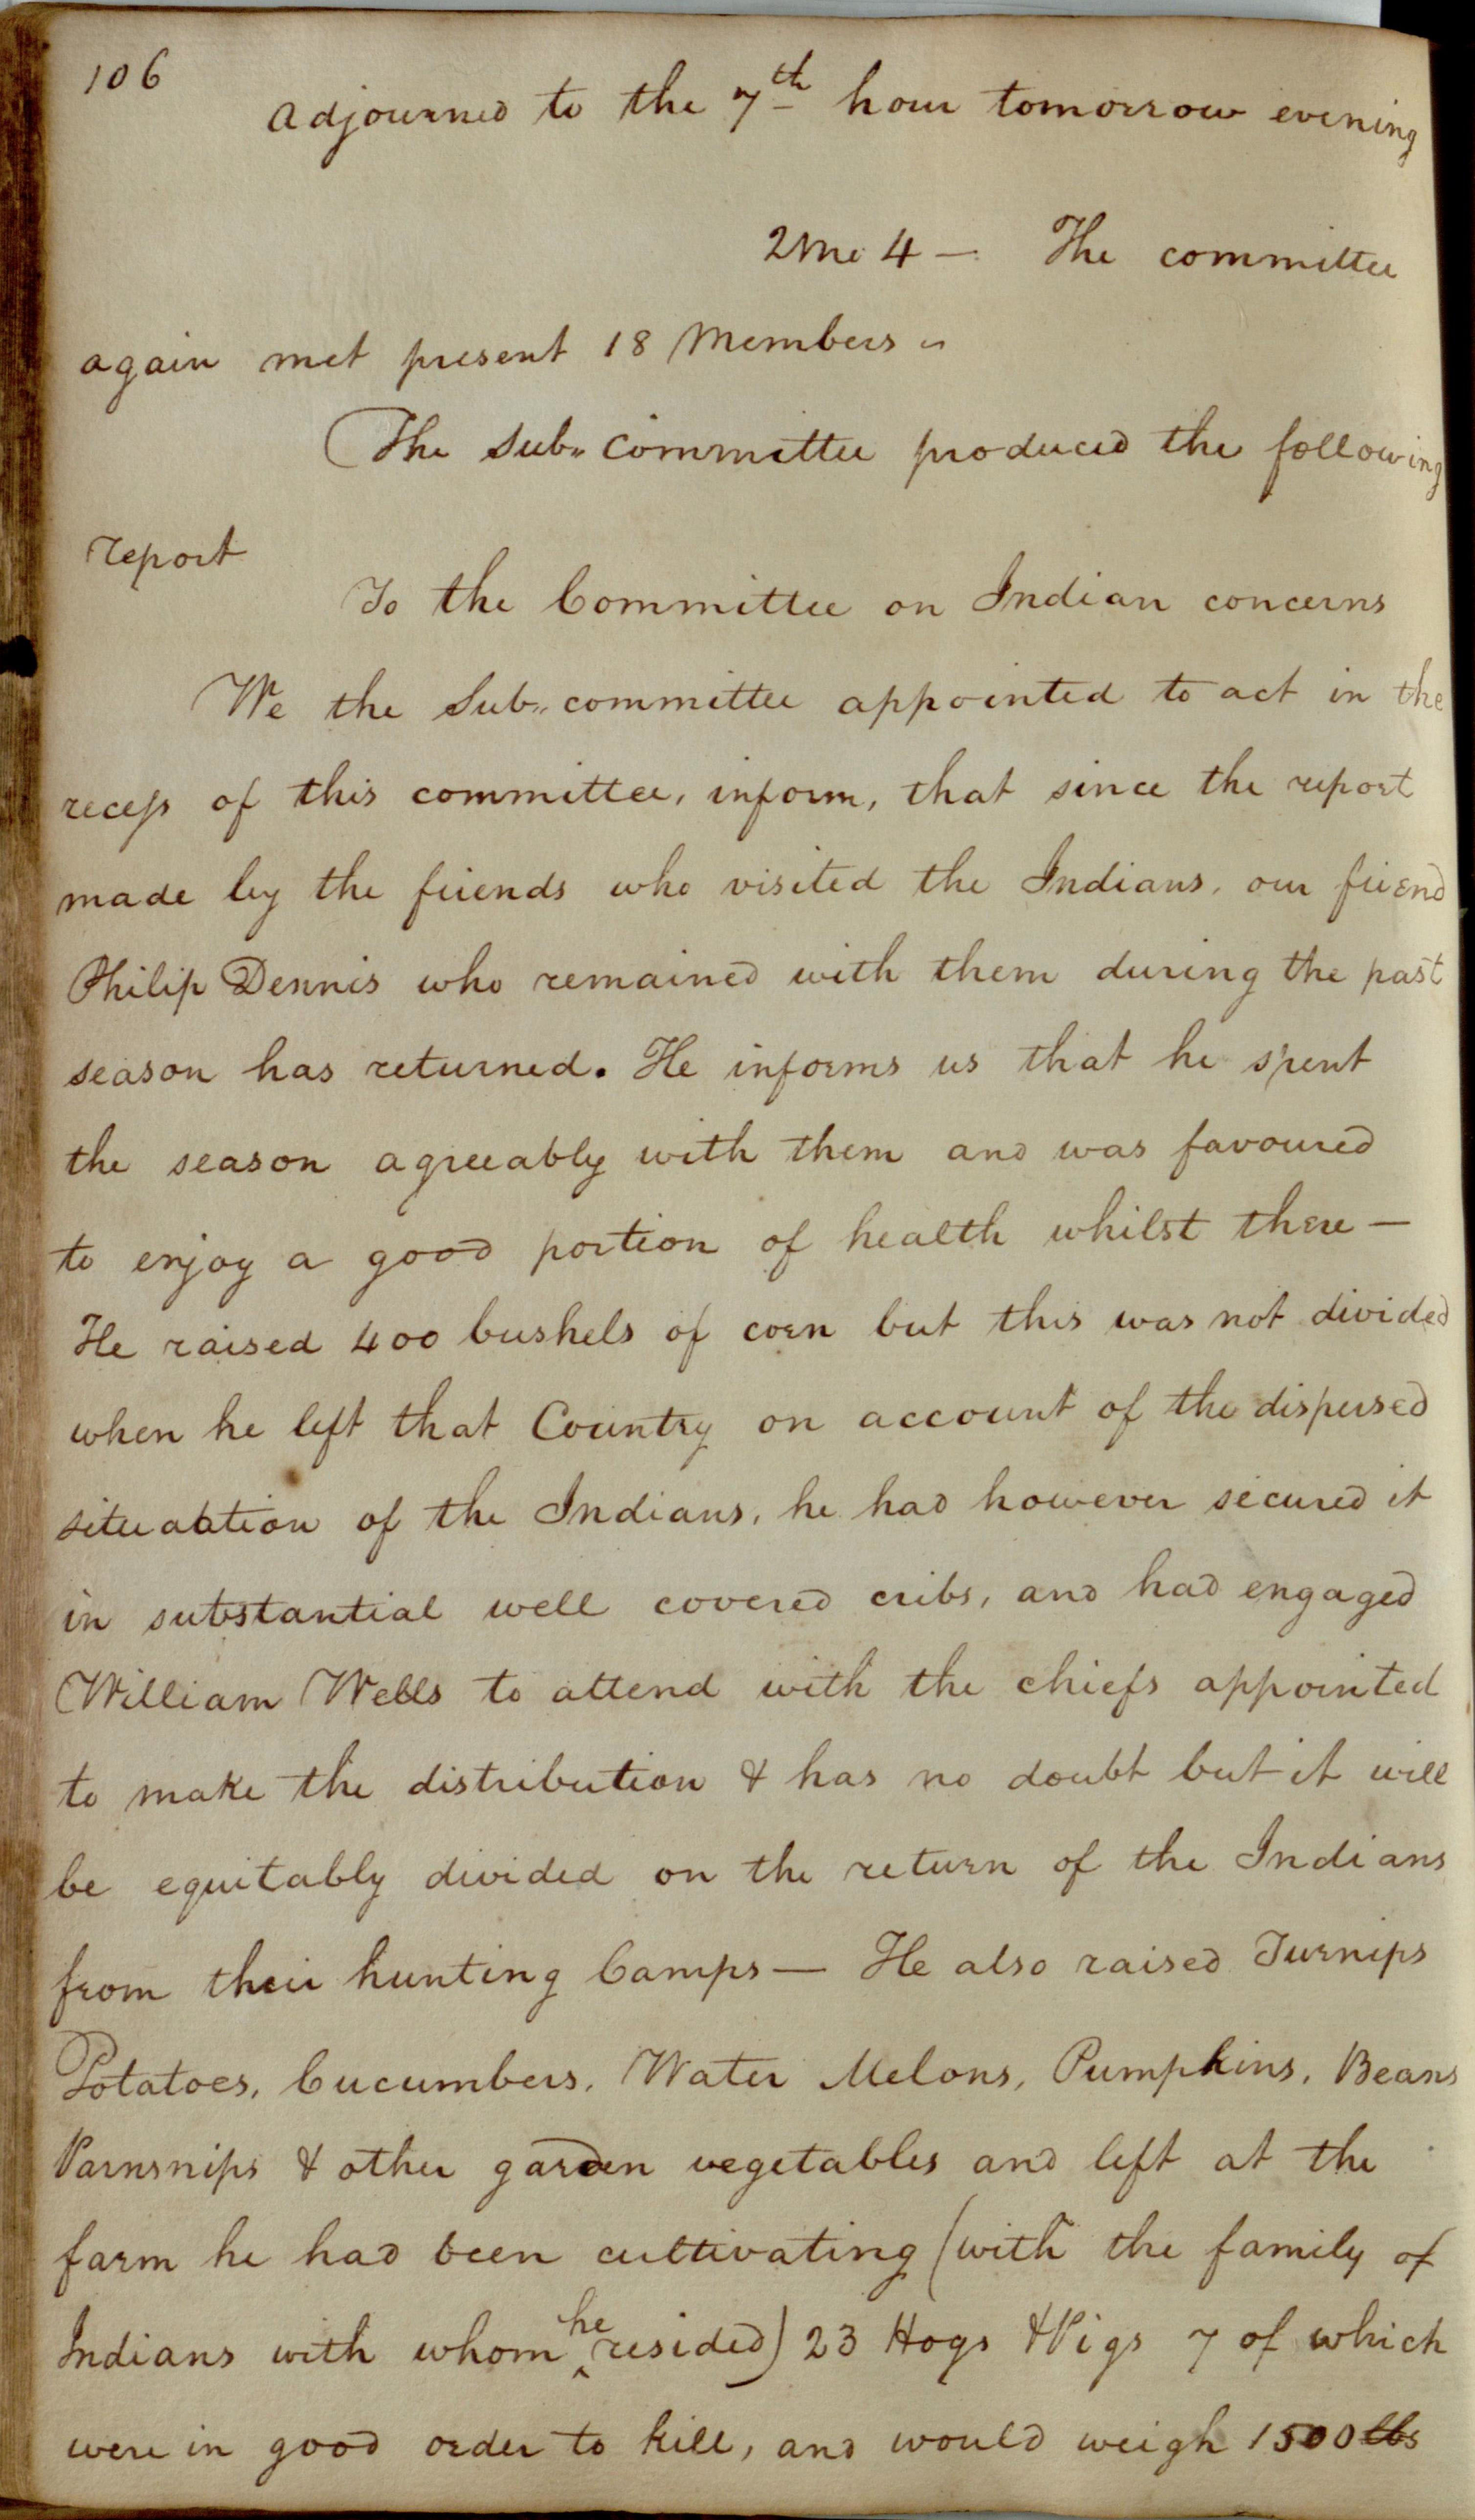 106
Adjourned to the 7th hour tomorrow evening
2 Mo 4 — The committee
again met present 18 Members
The Sub„ Committee produced the following
report
To the Committee on Indian concerns
We the Sub„ committee appointed to act in the
recess of this committee, inform, that since the report
made by the friends who visited the Indians, our friend
Philip Dennis who remained with them during the past
season has returned. He informs us that he spent
the season agreeably with them and was favoured
to enjoy a good portion of health whilst there —
He raised 400 bushels of corn but this was not divided
when he left that Country on account of the dispersed
situation of the Indians, he had however secured it
in substantial well covered cribs, and had engaged
William Wells to attend with the chiefs appointed
to make the distribution & has no doubt but it will
be equitably divided on the return of the Indians
from their hunting Camps — He also raised Turnips
Potatoes, Cucumbers, Water Melons, Pumpkins, Beans
Parnsnips & other garden vegetables and left at the
farm he had been cultivating (with the family of
Indians with whom he resided) 23 Hogs & Pigs 7 of which
were in good order to kill, and would weigh 1500 lbs